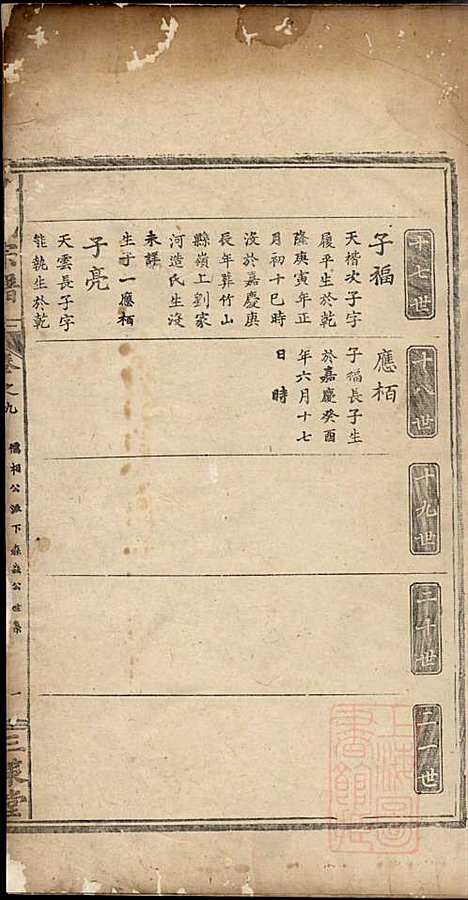 十七世
子福
天楷次子字
履平生於乾
隆庚寅年正
月初十巳時
沒於嘉慶庚
辰年葬竹山
縣嶺上劉家
河造氏生沒
未詳
生子一應栢
子亮
天雲長子字
能執生於乾
十八世
應栢
子福長子生
於嘉慶癸酉
年六月十七
日 時
十九世
二十世
二一世
宗譜
卷之九
公派下
公世系
一
三槐堂
上海圖
書館藏